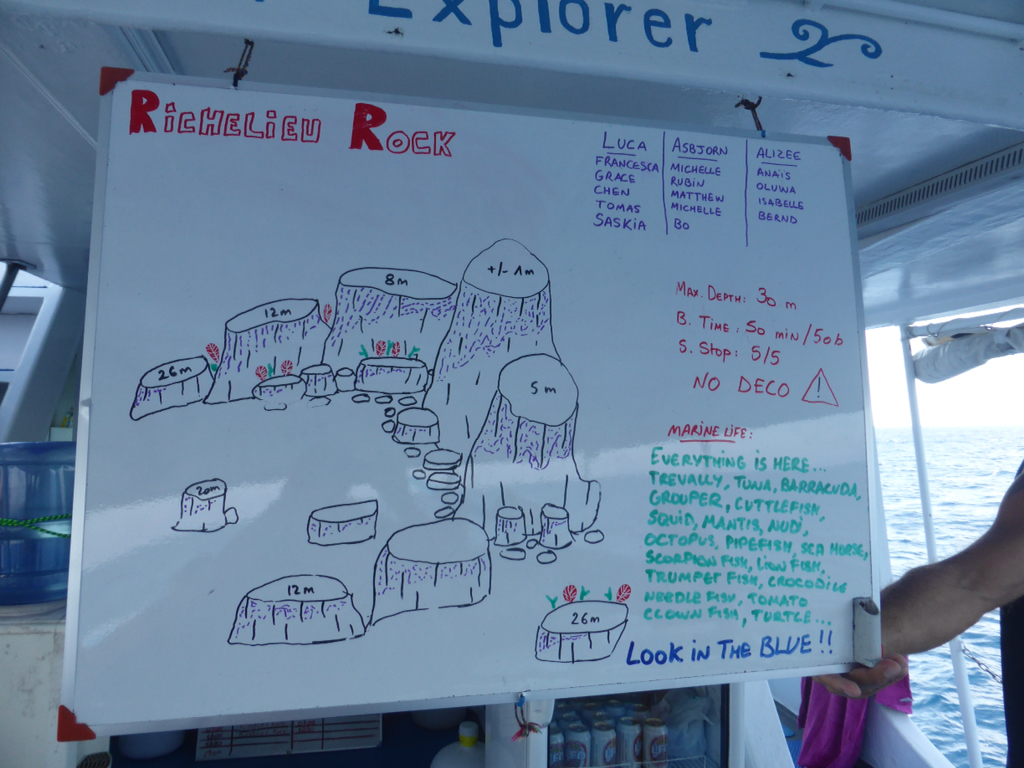 Explorer
RICHELIEU ROCK
LUCA
FRANCESCA
GRACE
CHEN
TOMAS
SASKIA
ASBJORN
MICHELLE
RUBIN
MATTHEW
MICHELLE
BO
ALIZEE
ANAïS
OLUWA
ISABELLE
BERND
+/- 1m
8m
12m
26m
5m
20m
12m
26m
MAX. DEPTH: 30 m
B. TIME: 50 min/50b
S. STOP: 5/5
NO DECO !
MARINE LIFE:
EVERYTHING IS HERE...
TREVALLY, TUNA, BARRACUDA,
GROUPER, CUTTLEFISH,
SQUID, MANTIS, NUDI,
OCTOPUS, PIPEFISH, SEA HORSE,
SCORPION FISH, LION FISH,
TRUMPET FISH, CROCODILE
NEEDLE FISH, TOMATO
CLOWN FISH, TURTLE...
LOOK IN THE BLUE!!